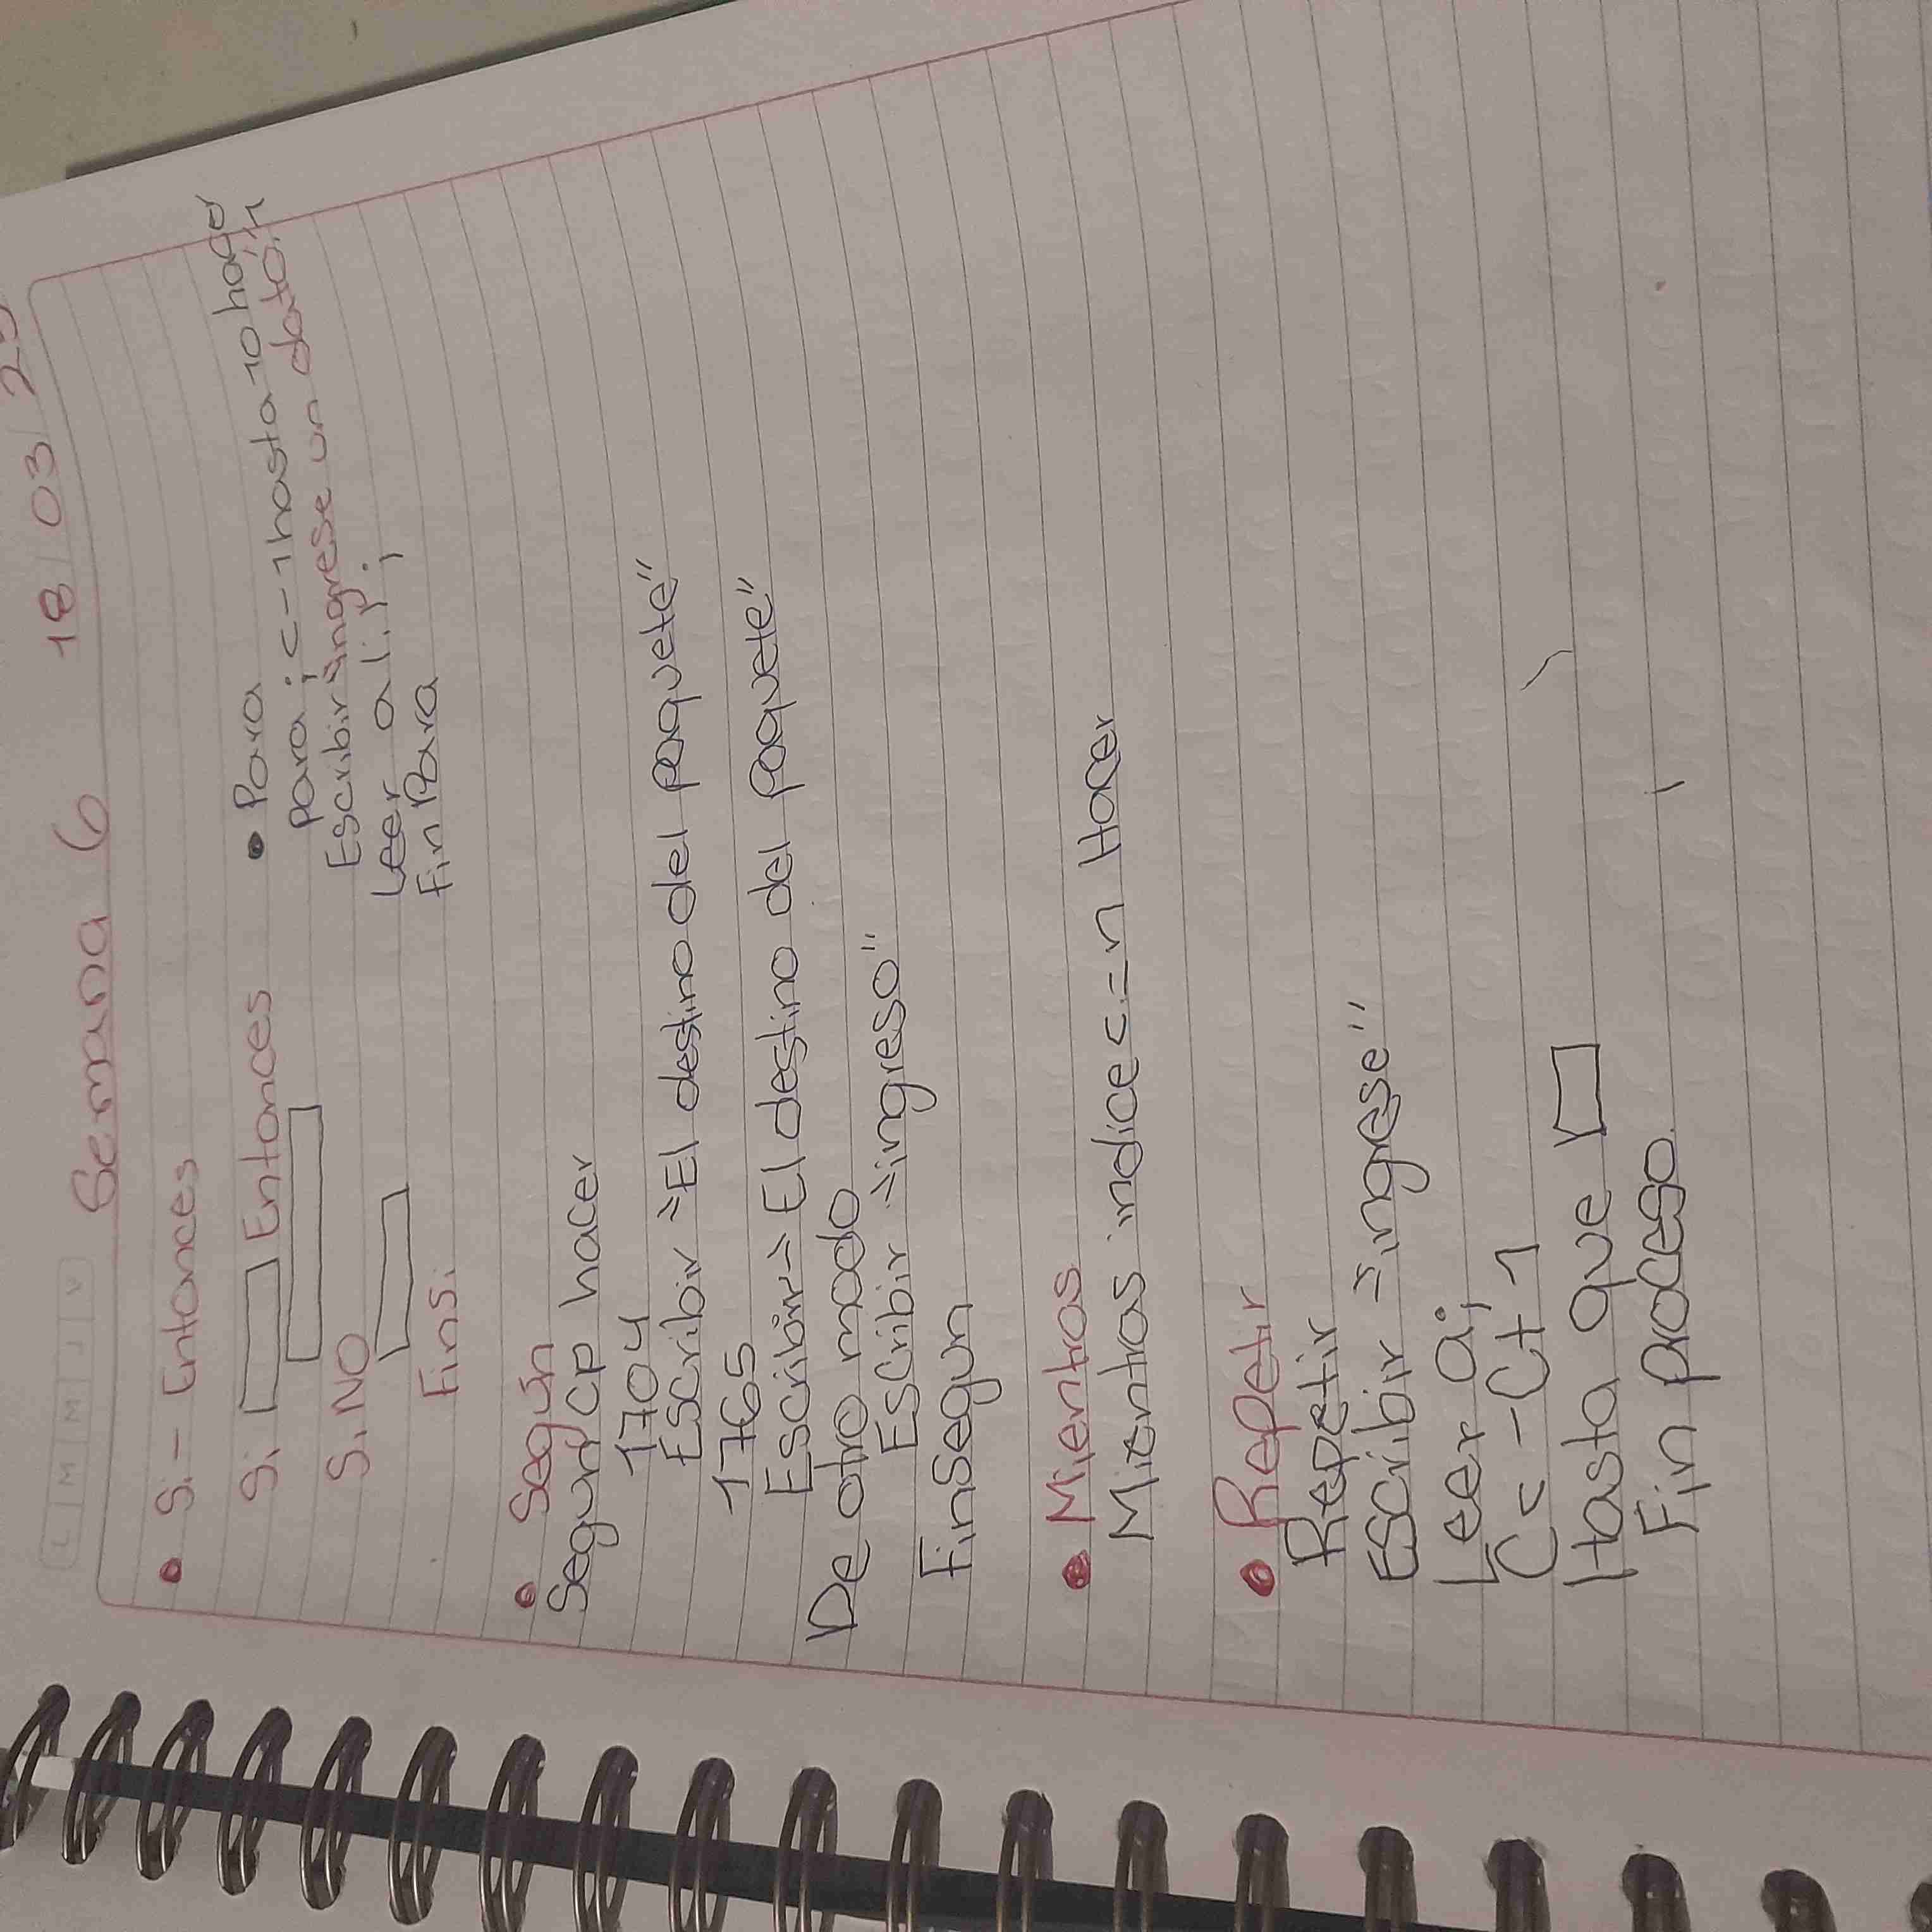 L M M J V
Semana 6 18/03/25
• Si - Entonces
Si Entonces
SiNO
Finsi
• Para
para i <- 1 hasta 10 hacer
Escribir "ingrese un dato",i
Leer a[i];
Fin Para
• Según
Segun cp hacer
1704
Escribir "El destino del paquete"
1765
Escribir "El destino del paquete"
De otro modo
Escribir "ingreso"
Finsegun
• Mientras
Mientras indice <= n Hacer
• Repetir
Repetir
Escribir "ingrese"
Leer a;
C <- C+1
Hasta que
Fin proceso